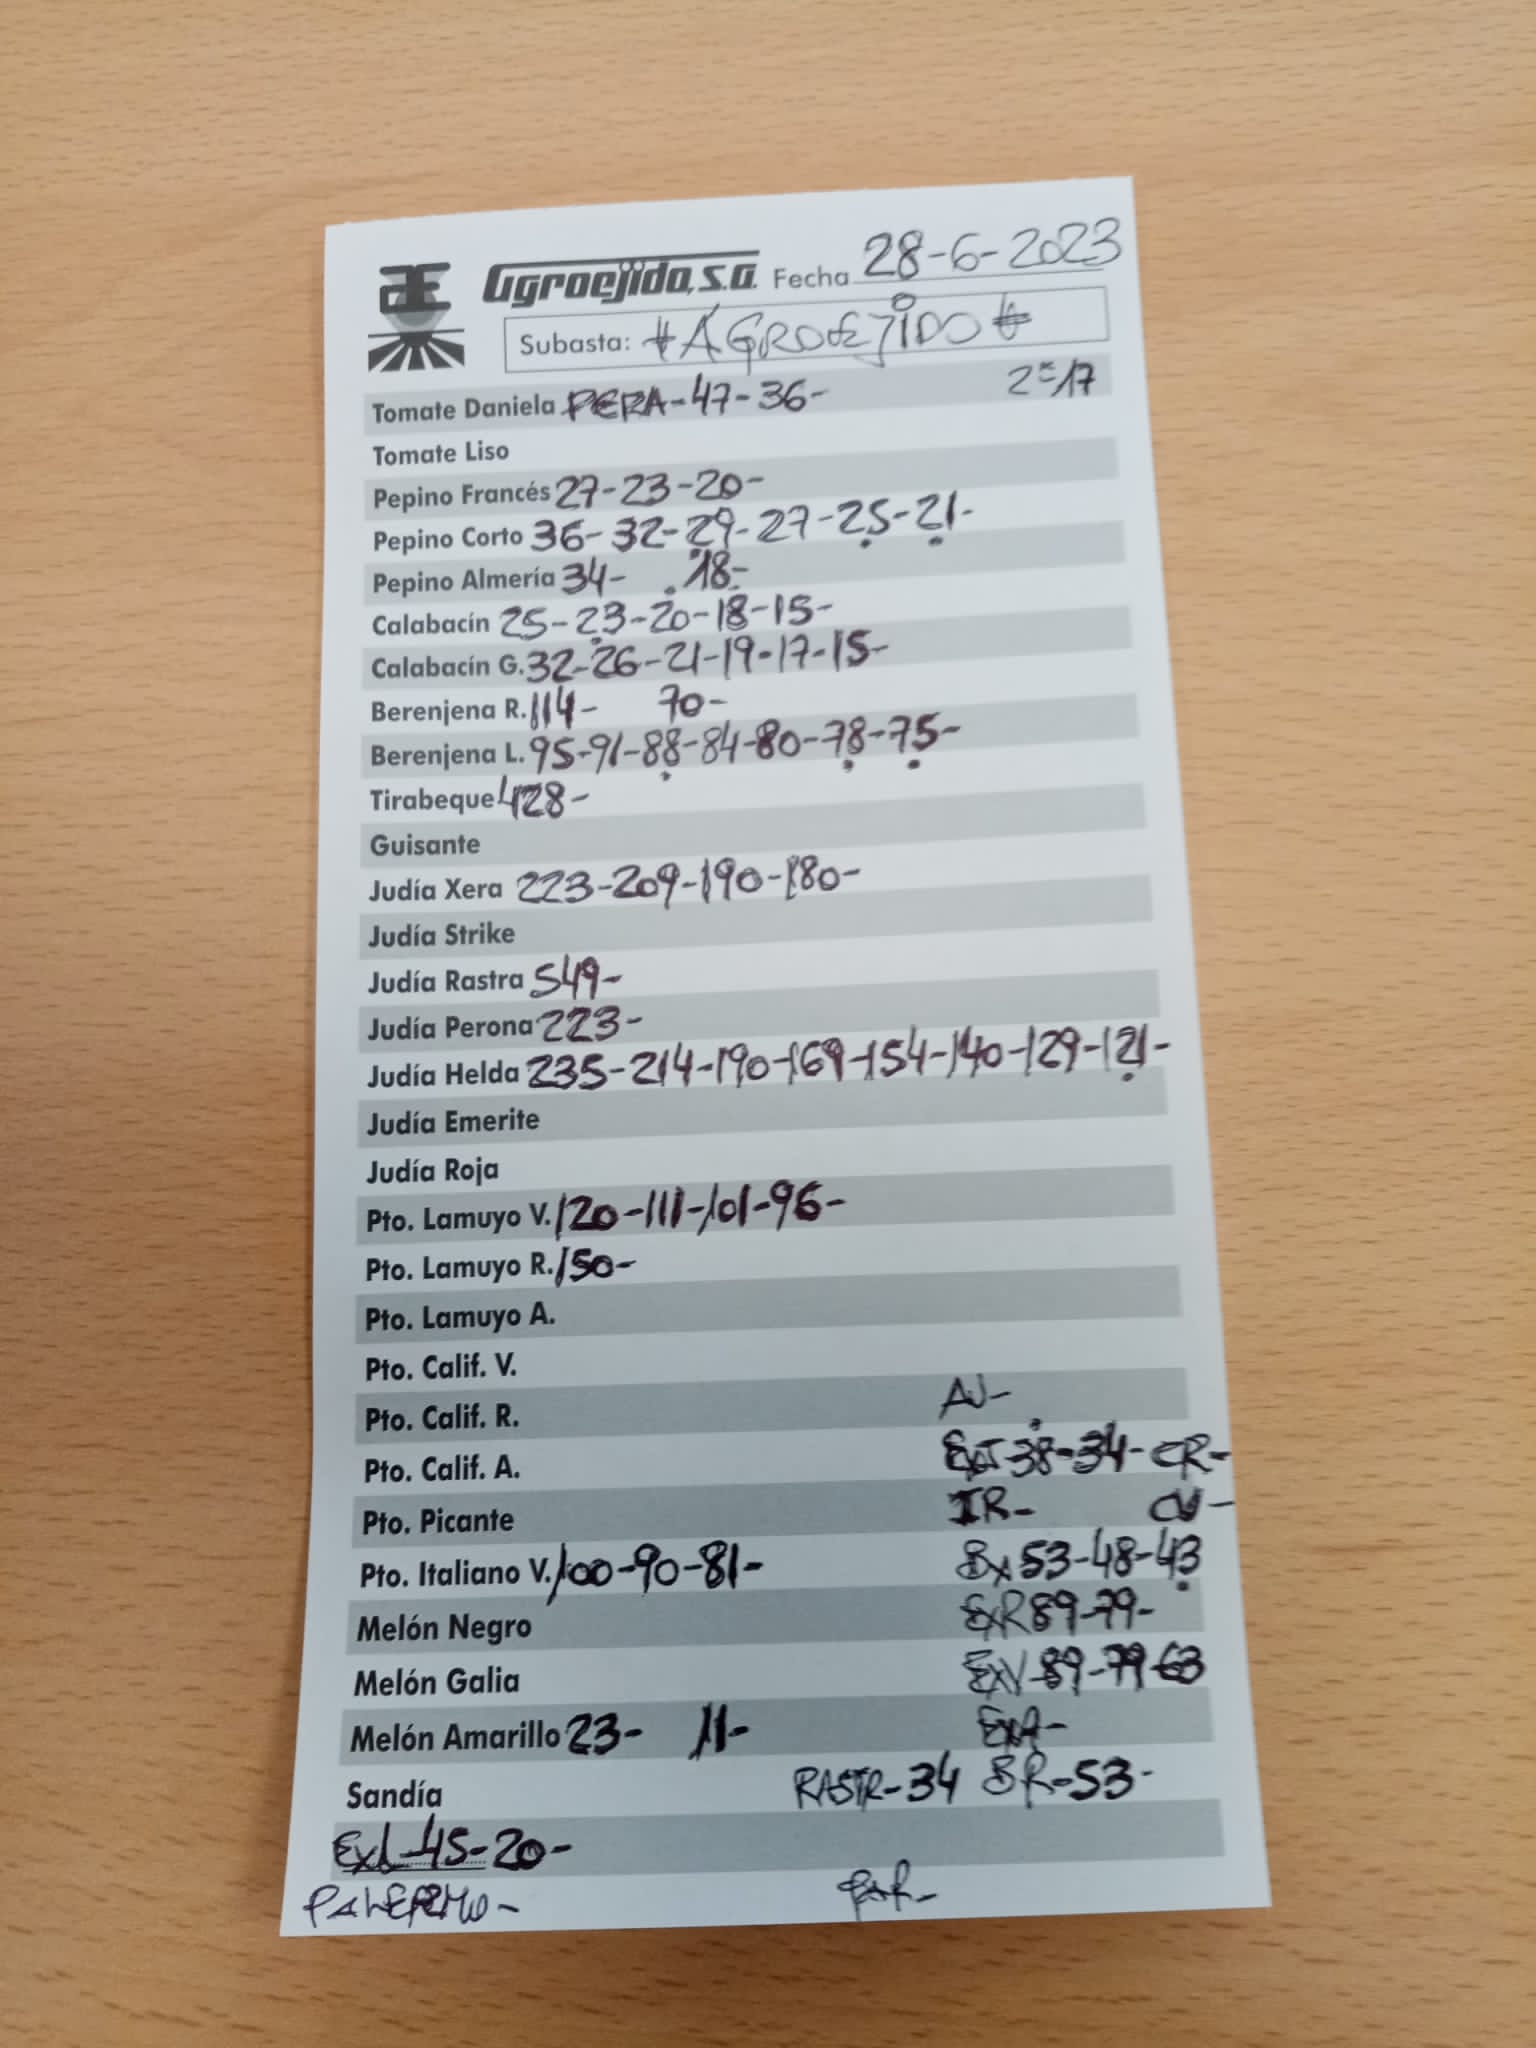 Agroejido, S.A. Fecha 28-6-2023
Subasta: #AGROEJIDO#
Tomate Daniela PERA-47-36- 2ª=17
Tomate Liso
Pepino Francés 27-23-20-
Pepino Corto 36-32-29-27-25-21-
Pepino Almería 34- 18-
Calabacín 25-23-20-18-15-
Calabacín G. 32-26-21-19-17-15-
Berenjena R. 114- 70-
Berenjena L. 95-91-88-84-80-78-75-
Tirabeque 428-
Guisante
Judía Xera 223-209-190-180-
Judía Strike
Judía Rastra 549-
Judía Perona 223-
Judía Helda 235-214-190-169-154-140-129-121-
Judía Emerite
Judía Roja
Pto. Lamuyo V. 120-111-101-96-
Pto. Lamuyo R. 150-
Pto. Lamuyo A.
Pto. Calif. V.
Pto. Calif. R. AJ-
Pto. Calif. A. 38-34- CR-
Pto. Picante IR- CV-
Pto. Italiano V. 100-90-81- Bx 53-48-43
Melón Negro ExR 89-79-
Melón Galia ExV-89-79-63
Melón Amarillo 23- 11- ExA-
Sandía RASTR-34 BR-53-
ExL-45-20-
PALERMO-